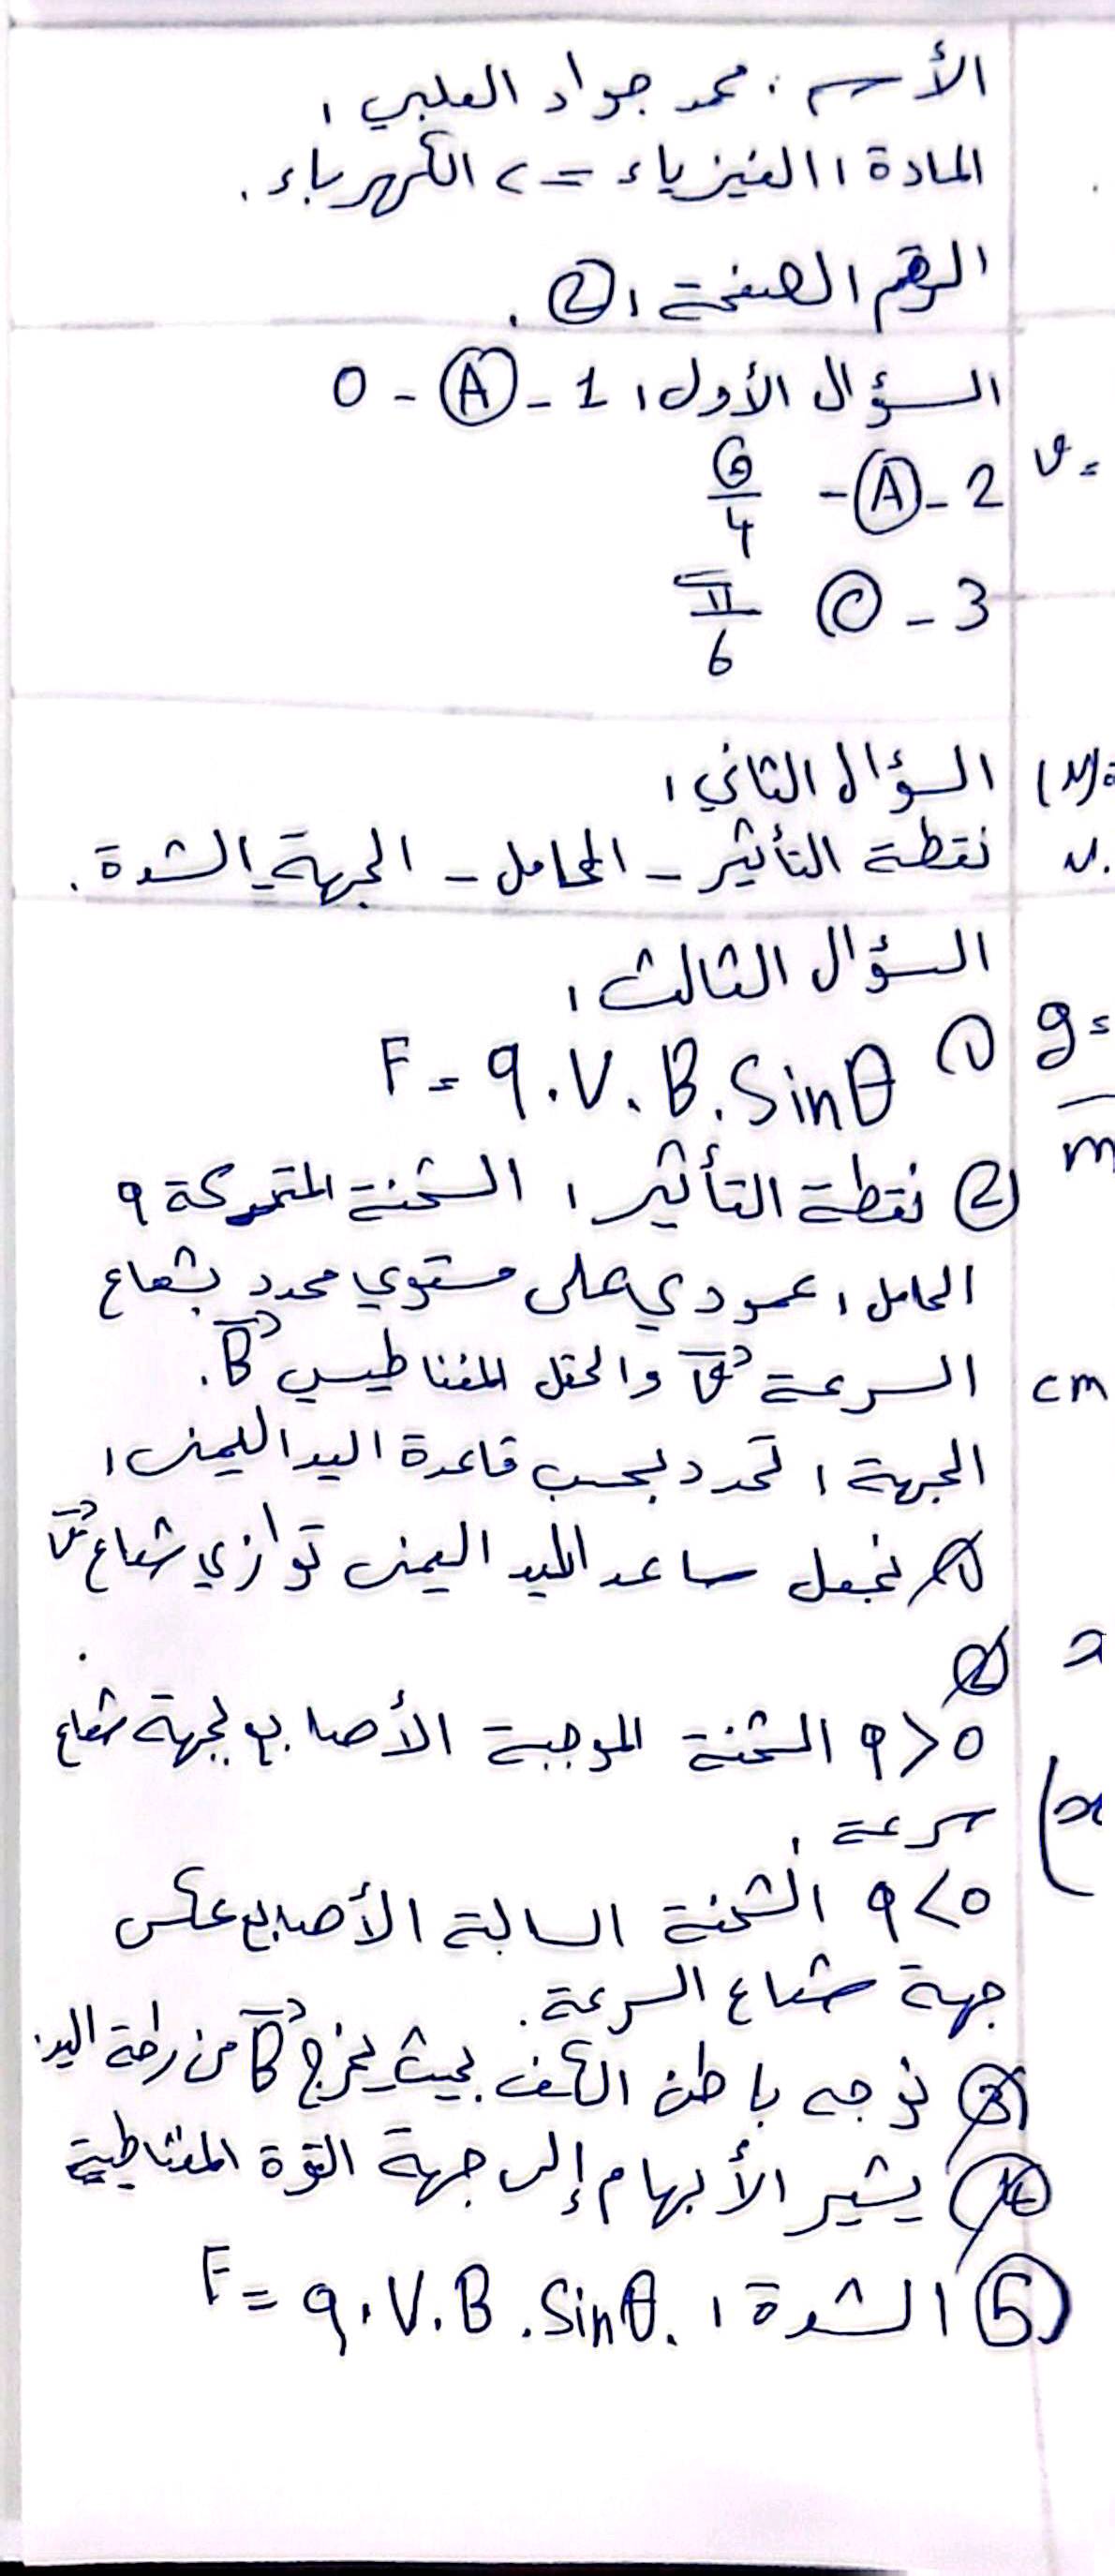 الأسم : محمد جواد العلبي ,
المادة ، الفيزياء => الكهرباء .
الرقم الصفحة ، ② .
السؤال الأول ، 1 - Ⓐ - 0
2 - Ⓐ - 6/4
3 - Ⓒ π/6
السؤال الثاني ،
نقطة التأثير - الحامل - الجهة - الشدة .
السؤال الثالث ،
① F = q . V . B . Sin θ
② نقطة التأثير ، الشحنة المتحركة q
الحامل ، عمودي على مستوي محدد بشعاع
السرعة v⃗ والحقل المغناطيسي B⃗ .
الجهة ، تحدد بحسب قاعدة اليد اليمنى ،
① نجعل ساعد اليد اليمنى توازي شعاع v⃗
②
q > 0 الشحنة الموجبة الأصابع بجهة شعاع
سرعة .
q < 0 الشحنة السالبة الأصابع عكس
جهة شعاع السرعة .
③ نوجه باطن الكف بحيث يخرج B⃗ من راحة اليد .
④ يشير الأبهام إلى جهة القوة المغناطيسية
⑤ الشدة ، F = q . V . B . Sin θ .
v =
g =
m
cm